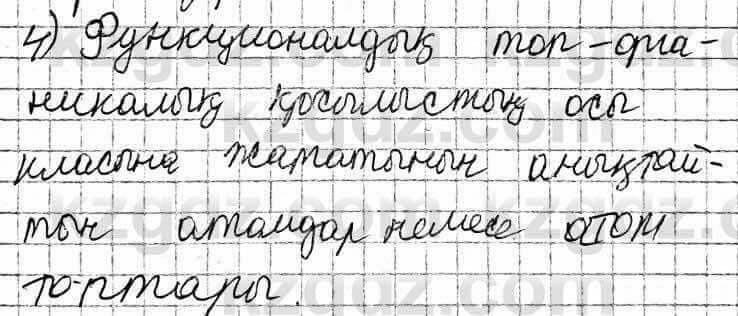 4) Функционалдық топ-орга-
никалық қосылыстың осы
класына жататынын анықтай-
тын атомдар немесе атом
топтары.